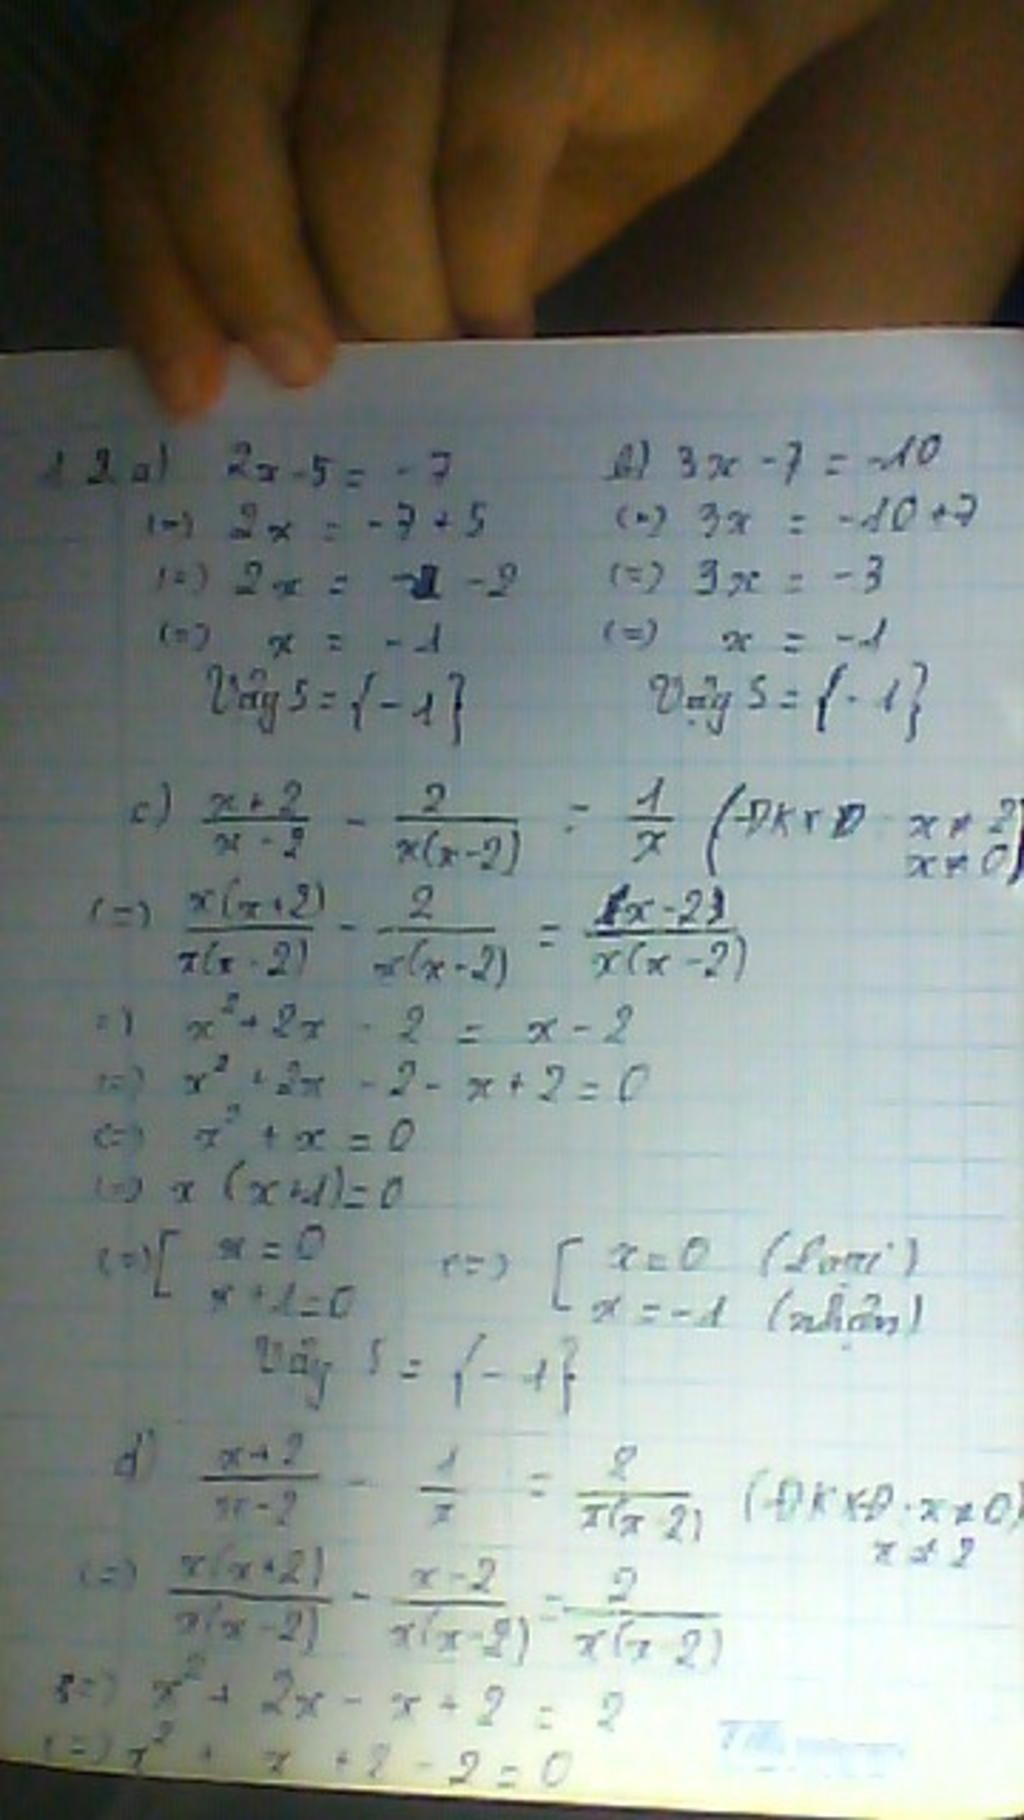 1 2 a) 2x - 5 = -7
(=) 2x = -7 + 5
(=) 2x = -2
(=) x = -1
Vậy S = {-1}
b) 3x - 7 = -10
(=) 3x = -10 + 7
(=) 3x = -3
(=) x = -1
Vậy S = {-1}
c) (x+2)/(x-2) - 2/(x(x-2)) = 1/x (ĐKXĐ x ≠ 2
x ≠ 0)
(=) x(x+2)/(x(x-2)) - 2/(x(x-2)) = (x-2)/(x(x-2))
=) x² + 2x - 2 = x - 2
(=) x² + 2x - 2 - x + 2 = 0
(=) x² + x = 0
(=) x (x+1) = 0
(=) [ x = 0 (=) [ x = 0 (Loại)
x + 1 = 0 x = -1 (nhận)
Vậy S = {-1}
d) (x+2)/(x-2) - 1/x = 2/(x(x-2)) (ĐKXĐ. x ≠ 0)
x ≠ 2
(=) x(x+2)/(x(x-2)) - (x-2)/(x(x-2)) = 2/(x(x-2))
=) x² + 2x - x + 2 = 2
(=) x² + x + 2 - 2 = 0